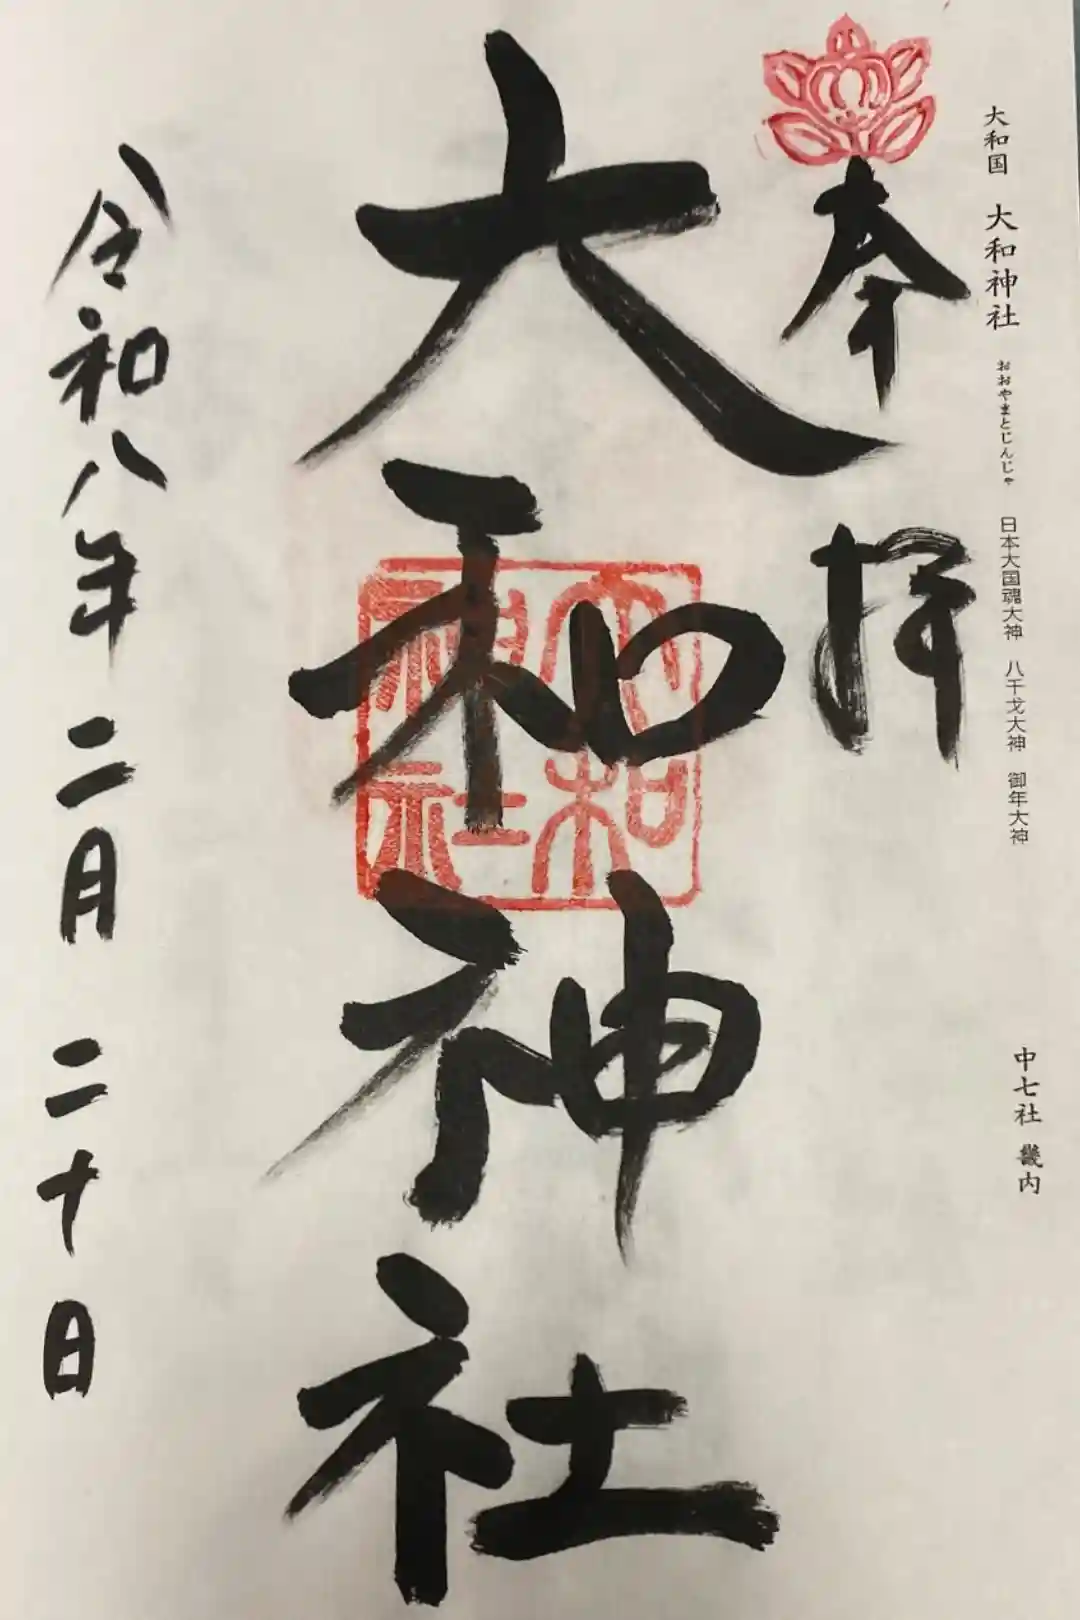 大和国 大和神社 おおやまとじんじゃ 日本大国魂大神 八千戈大神 御年大神
中七社 畿内
奉拝
大和神社
大和神社
令和八年二月二十日